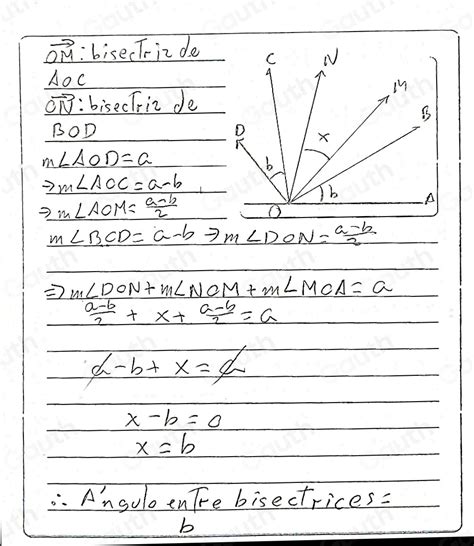 OM: bisectriz de
AOC
ON: bisectriz de
BOD
m∠AOD=a
⇒m∠AOC=a-b
⇒m∠AOM=a-b/2
m∠BOD=a-b⇒m∠DON=a-b/2
C
N
M
B
D
x
b
b
O
A
⇒m∠DON+m∠NOM+m∠MOA=a
a-b/2 + x + a-b/2 = a
a-b+x=a
x-b=0
x=b
∴ Ángulo entre bisectrices=
b